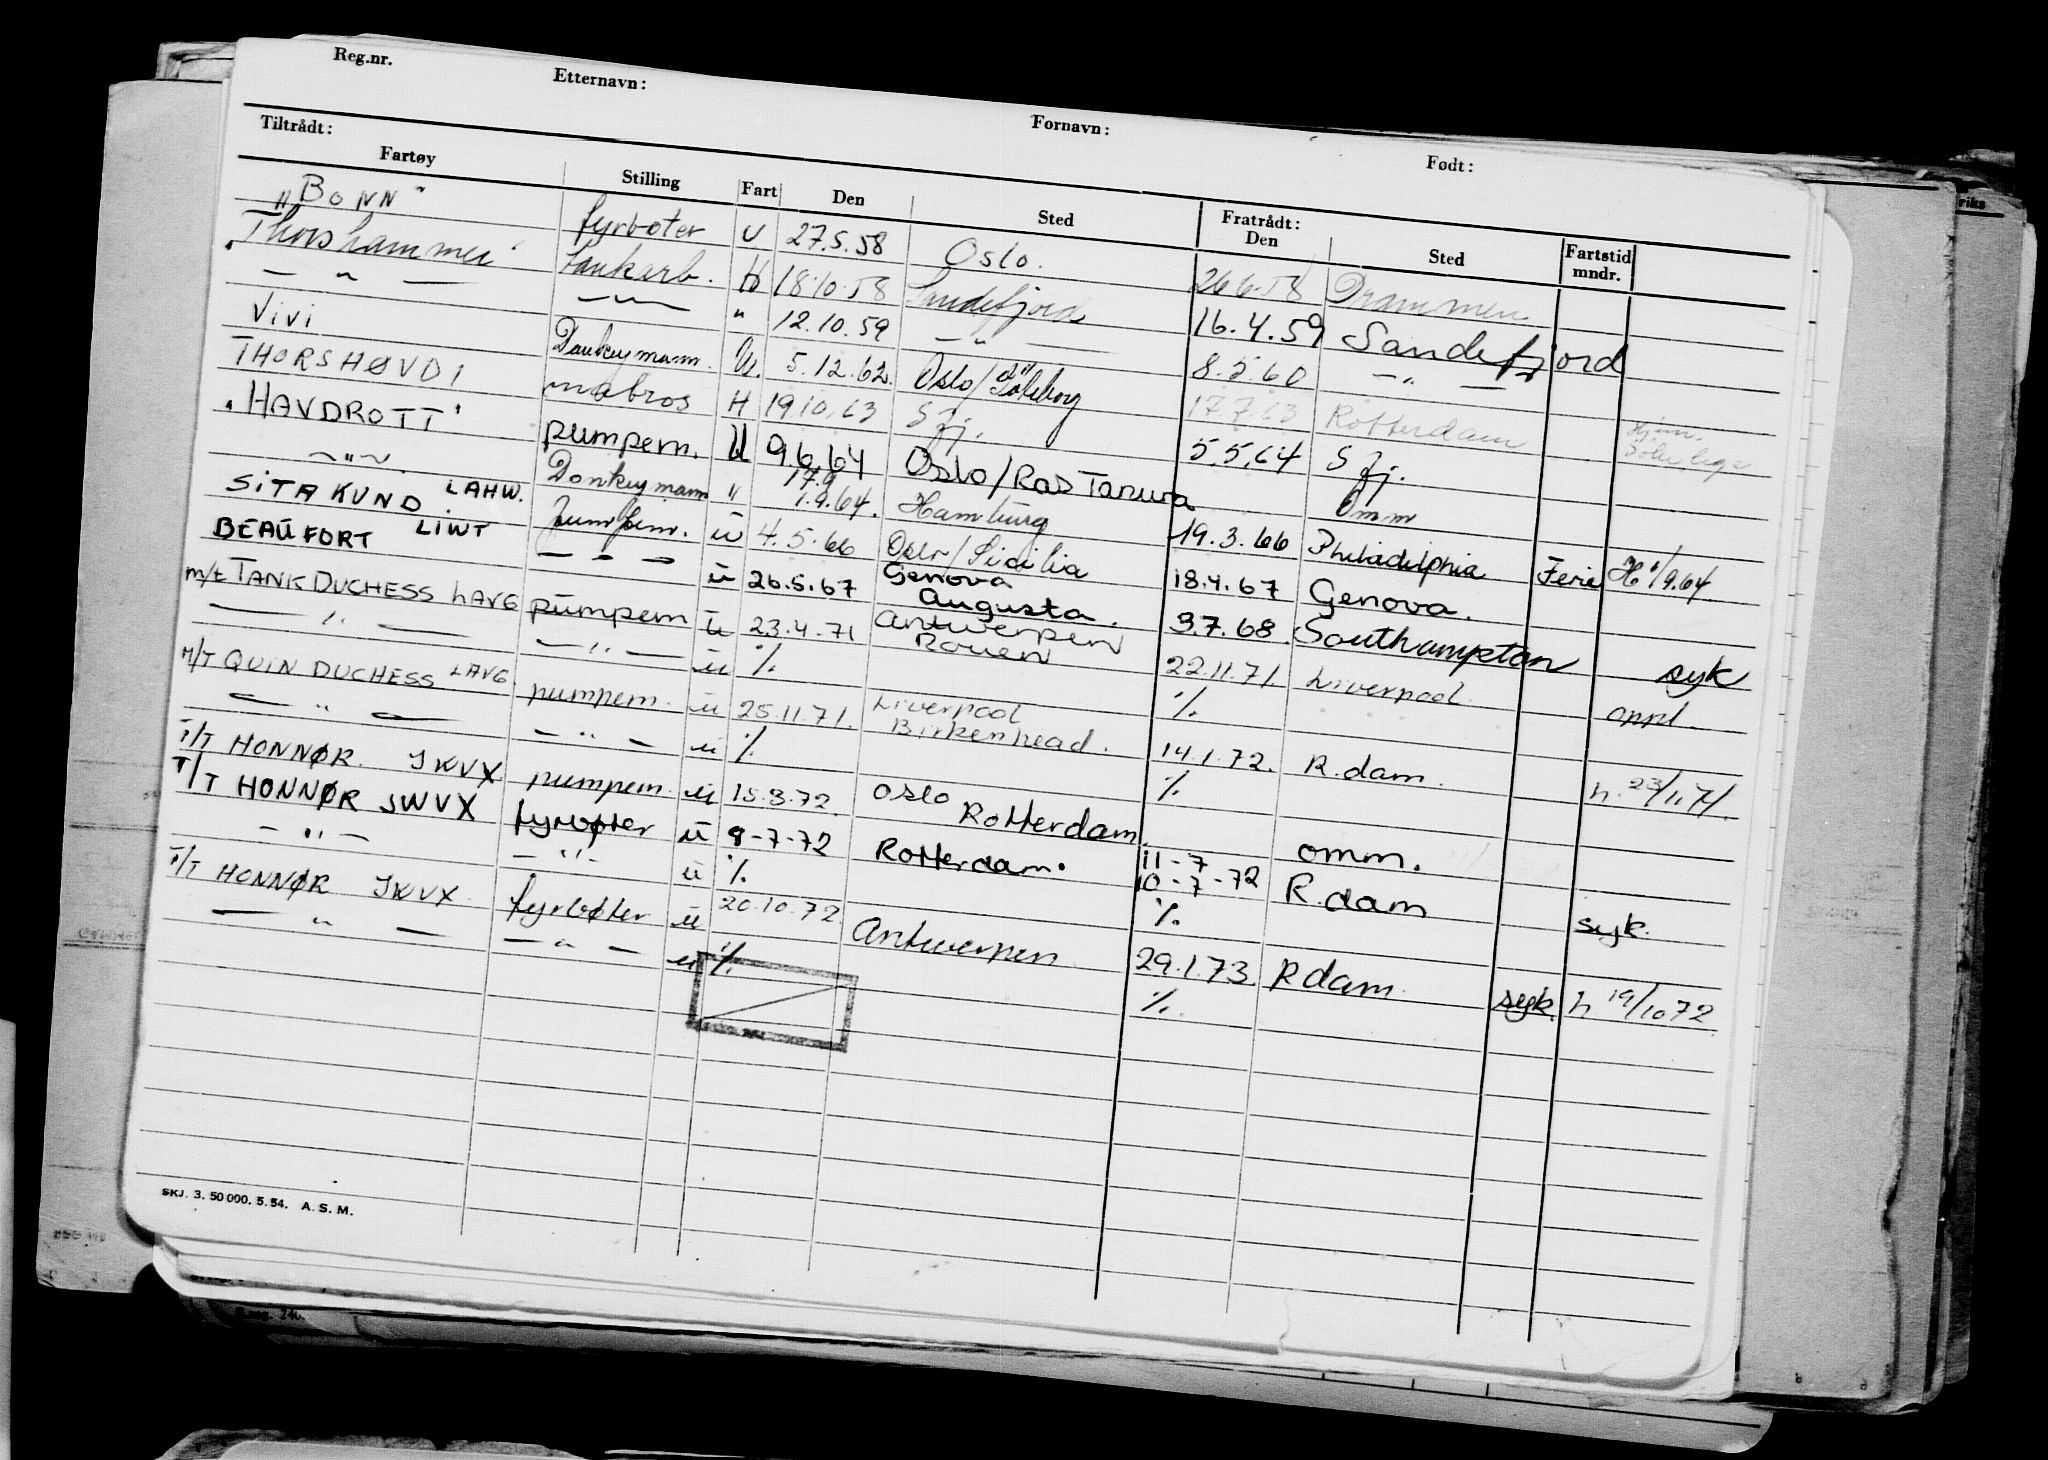 Reg.nr. Etternavn: Fornavn: Født:
Tiltrådt: Fratrådt:
Fartøy Stilling Fart Den Sted Den Sted Fartstid mndr.
"BONN" fyrbøter U 27.5.58 Oslo. 26.6.58 Drammen
"Thorshammer" tankarb. H 18.10.58 Sandefjord 16.4.59 Sandefjord
— " — — " — " 12.10.59 — " — 8.5.60 — " —
ViVi Donkeymann. U. 5.12.62. Oslo/Göteborg 17.7.63 Rotterdam
THORSHØVDI mabros H 19.10.63 Sfj. 5.5.64 Sfj.
"HAVDROTT" pumpem. U 9.6.64 Oslo/Ras Tanura Omm
— " — Donkeymann " 17.9 1.9.64. Hamburg 19.3.66 Philadelphia Ferie H 1/9.64
SITAKUND LAHW. pumpem. u 4.5.66 Oslo/Sicilia 18.4.67 Genova.
BEAUFORT LIWT — — — u 26.5.67 Genova Augusta. 3.7.68. Southampton syk
m/t TANK DUCHESS LAVG pumpem u 23.4.71 Antwerpen Rouen 22.11.71. Liverpool. oppl.
— " — — " — u % %
M/T QUIN DUCHESS LAVG. pumpem. u 25.11.71. Liverpool Birkenhead. 14.1.72. R.dam. h. 23/11.71.
— " — — " — u % %
T/T HONNØR. JKVX pumpem. u 15.3.72. Oslo Rotterdam omm.
T/T HONNØR JWVX fyrbøter u 8-7-72 Rotterdam. 11-7 10-7-72 R.dam syk.
— " — — " — u % %
T/T HONNØR JKVX fyrbøter u 20.10.72 Antwerpen 29.1.73. Rdam. syk. h 19/10 72
— " — — " — u % %
SKJ. 3. 50 000. 5. 54. A. S. M.